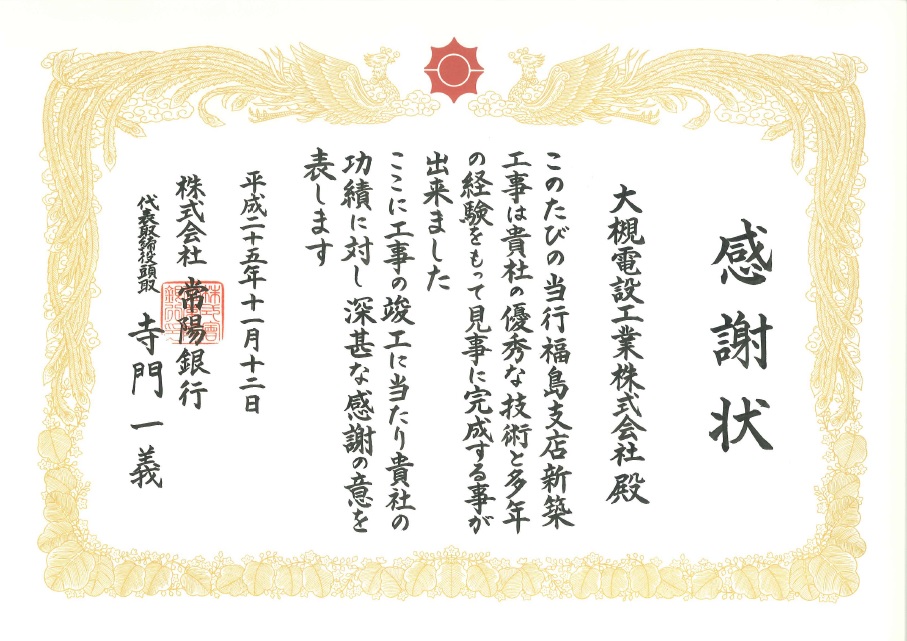 感謝状
大槻電設工業株式会社殿
このたびの当行福島支店新築
工事は貴社の優秀な技術と多年
の経験をもって見事に完成する事が
出来ました
ここに工事の竣工に当たり貴社の
功績に対し深甚な感謝の意を
表します
平成二十五年十一月十二日
株式会社 常陽銀行
代表取締役頭取 寺門一義